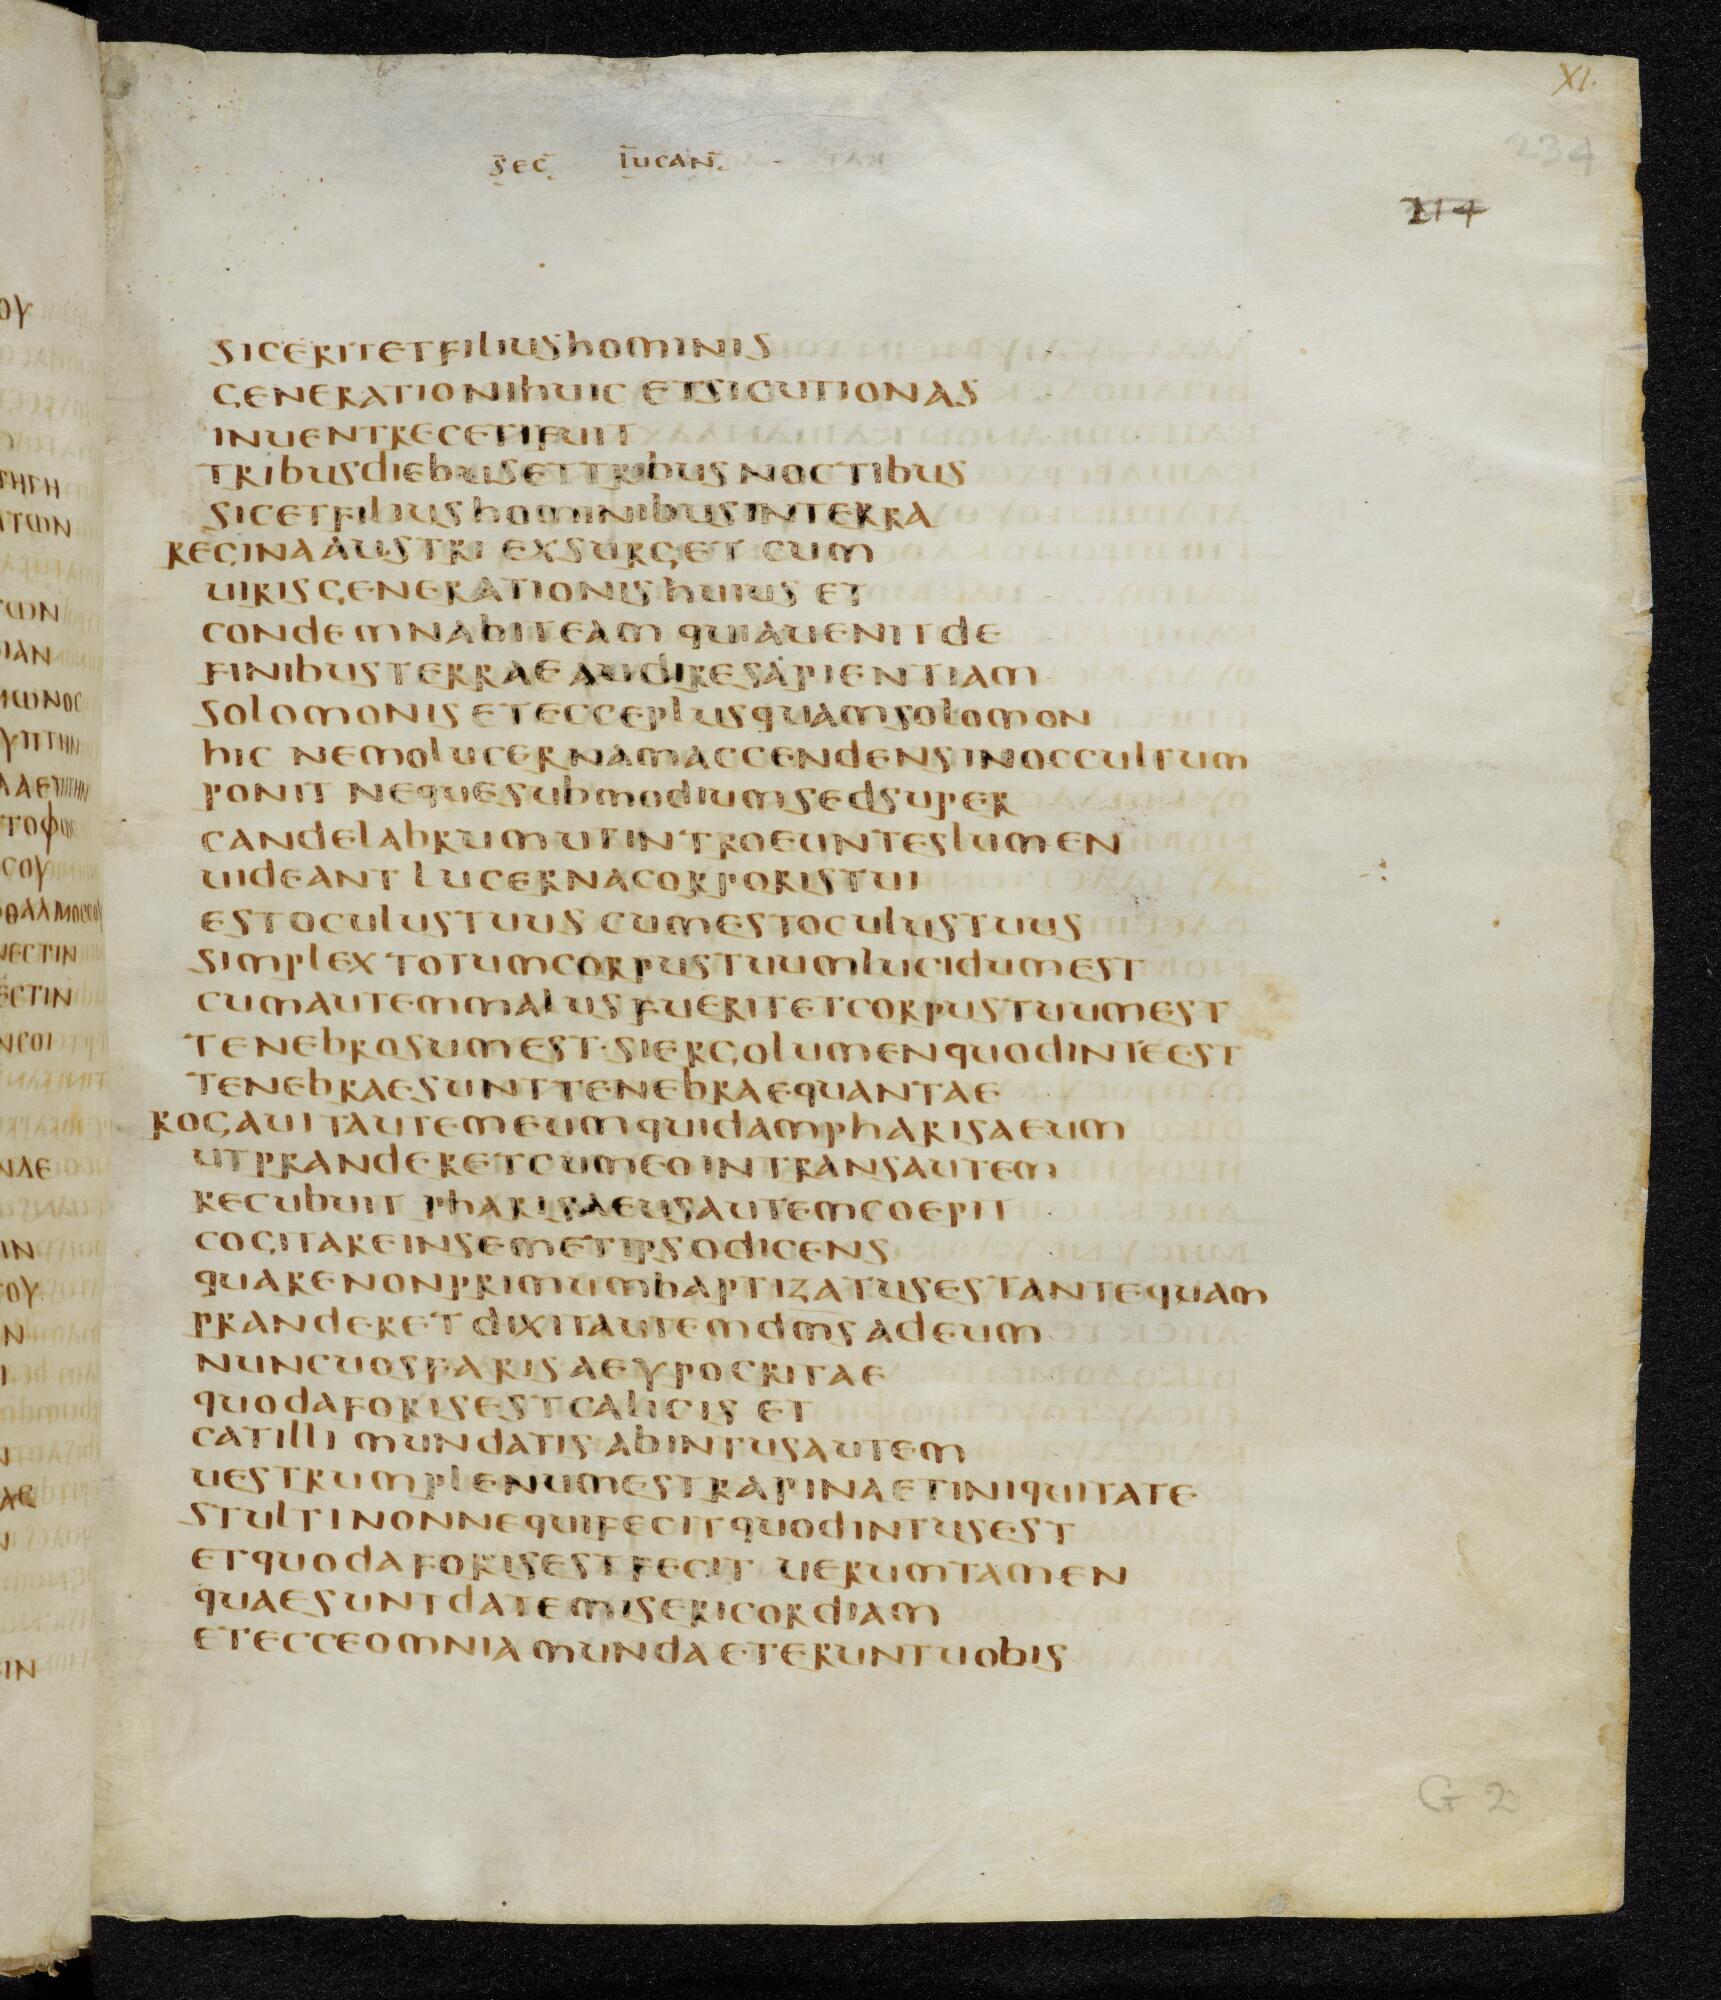 XI.
234
sec lucan
214
siceritetfiliushominis
generationihuic etsicutionas
inuentrecetifuit
tribusdiebusettribus noctibus
sicetfiliushominibusinterra
reginaaustri exsurget cum
uirisgenerationishuius et
condemnabiteam quiauenitde
finibusterraeaudiresapientiam
solomonisetecceplusquamsolomon
hic nemolucernamaccendensinoccultum
ponit nequesubmodiumsedsuper
candelabrumutintroeunteslumen
uideant lucernacorporistui
estoculustuus cumestoculustuus
simplex totumcorpustuumlucidumest
cumautemmalusfueritetcorpustuumest
tenebrosumest·siergolumenquodinteest
tenebraesunttenebraequantae
rogauitautemeumquidampharisaeum
utpranderetcumeointransautem
recubuit pharisaeusautemcoepit
cogitareinsemetipsodicens
quarenonprimumbaptizatusestantequam
pranderet dixitautemdmsadeum
nuncuosfarisaeypocritae
quodaforisestcalicis et
catilli mundatis abintusautem
uestrumplenumestrapinaetiniquitate
stultinonnequifecitquodintusest
etquodaforisestfecit uerumtamen
quaesuntdatemisericordiam
etecceomniamundaeteruntuobis
G 2
ου
τηγη
ατων
των
ιαν
μωνος
υπτην
τοφως
σου
θαλμοσσου
νεστιν
εστιν
νσοι
ιν
του
ν
ιν